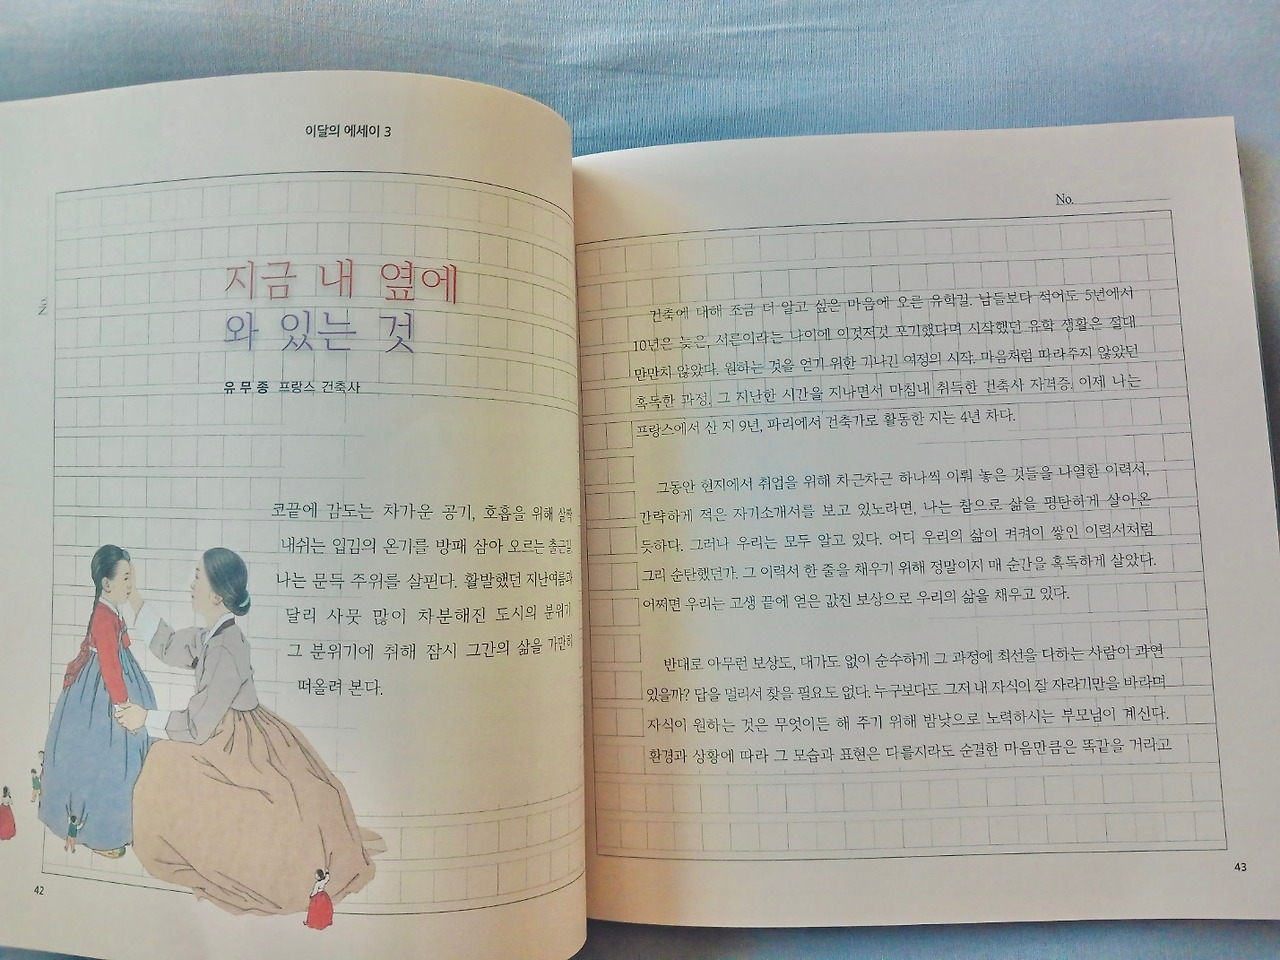 이달의 에세이 3
No.
지금 내 옆에
와 있는 것
유무종 프랑스 건축사
코끝에 감도는 차가운 공기, 호흡을 위해 살짝
내쉬는 입김의 온기를 방패 삼아 오르는 출근길
나는 문득 주위를 살핀다. 활발했던 지난여름과
달리 사뭇 많이 차분해진 도시의 분위기.
그 분위기에 취해 잠시 그간의 삶을 가만히
떠올려 본다.
42
No.
건축에 대해 조금 더 알고 싶은 마음에 오른 유학길. 남들보다 적어도 5년에서
10년은 늦은, 서른이라는 나이에 이것저것 포기했다며 시작했던 유학 생활은 절대
만만치 않았다. 원하는 것을 얻기 위한 기나긴 여정의 시작. 마음처럼 따라주지 않았던
혹독한 과정. 그 지난한 시간을 지나면서 마침내 취득한 건축사 자격증. 이제 나는
프랑스에서 산 지 9년, 파리에서 건축가로 활동한 지는 4년 차다.
그동안 현지에서 취업을 위해 차근차근 하나씩 이뤄 놓은 것들을 나열한 이력서,
간략하게 적은 자기소개서를 보고 있노라면, 나는 참으로 삶을 평탄하게 살아온
듯하다. 그러나 우리는 모두 알고 있다. 어디 우리의 삶이 켜켜이 쌓인 이력서처럼
그리 순탄했던가. 그 이력서 한 줄을 채우기 위해 정말이지 매 순간을 혹독하게 살았다.
어쩌면 우리는 고생 끝에 얻은 값진 보상으로 우리의 삶을 채우고 있다.
반대로 아무런 보상도, 대가도 없이 순수하게 그 과정에 최선을 다하는 사람이 과연
있을까? 답을 멀리서 찾을 필요도 없다. 누구보다도 그저 내 자식이 잘 자라기만을 바라며
자식이 원하는 것은 무엇이든 해 주기 위해 밤낮으로 노력하시는 부모님이 계신다.
환경과 상황에 따라 그 모습과 표현은 다를지라도 순결한 마음만큼은 똑같을 거라고
43